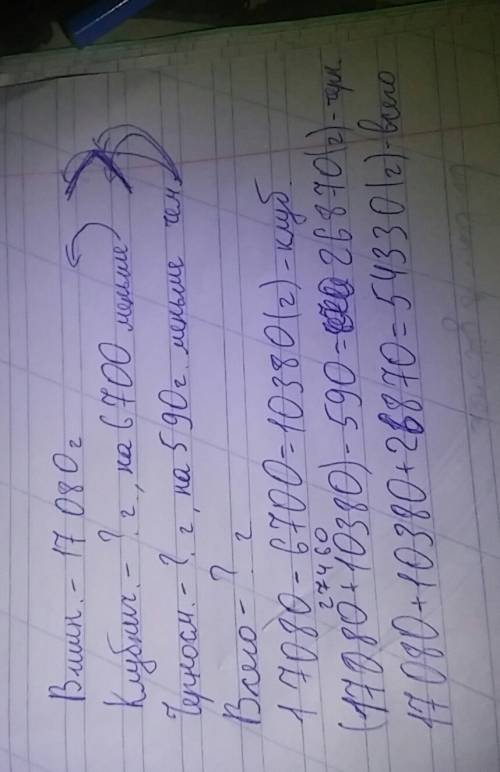 Вишн. - 17 080 г
Клубнич. - ? г, на 6700 меньше
Черносл. - ? г, на 590 г. меньше чем
Всего - ? г
17080 - 6700 = 10380 (г) - клуб.
27460
(17080 + 10380) - 590 = 26870 (г) - черн.
17080 + 10380 + 26870 = 54330 (г) - всего